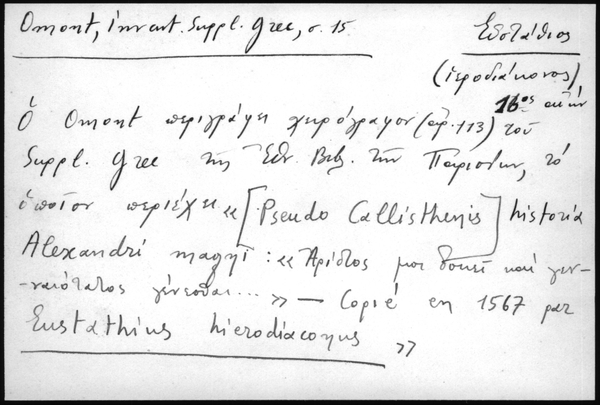 Omont, Invent. Suppl. Grec, σ. 15
Εὐστάθιος
(ἱεροδιάκονος)
16ος αἰών
Ὁ Omont περιγράφει χειρόγραφον (ἀρ. 113) τοῦ
Suppl. Grec τῆς Ἐθν. Βιβ. τῶν Παρισίων, τὸ
ὁποῖον περιέχει «[Pseudo Callisthenis] historia
Alexandri magni : «Ἄριστος μοι δοκεῖ καὶ γεν-
-ναιότατος γενέσθαι... » — Copié en 1567 par
Eustathius hierodiaconus »